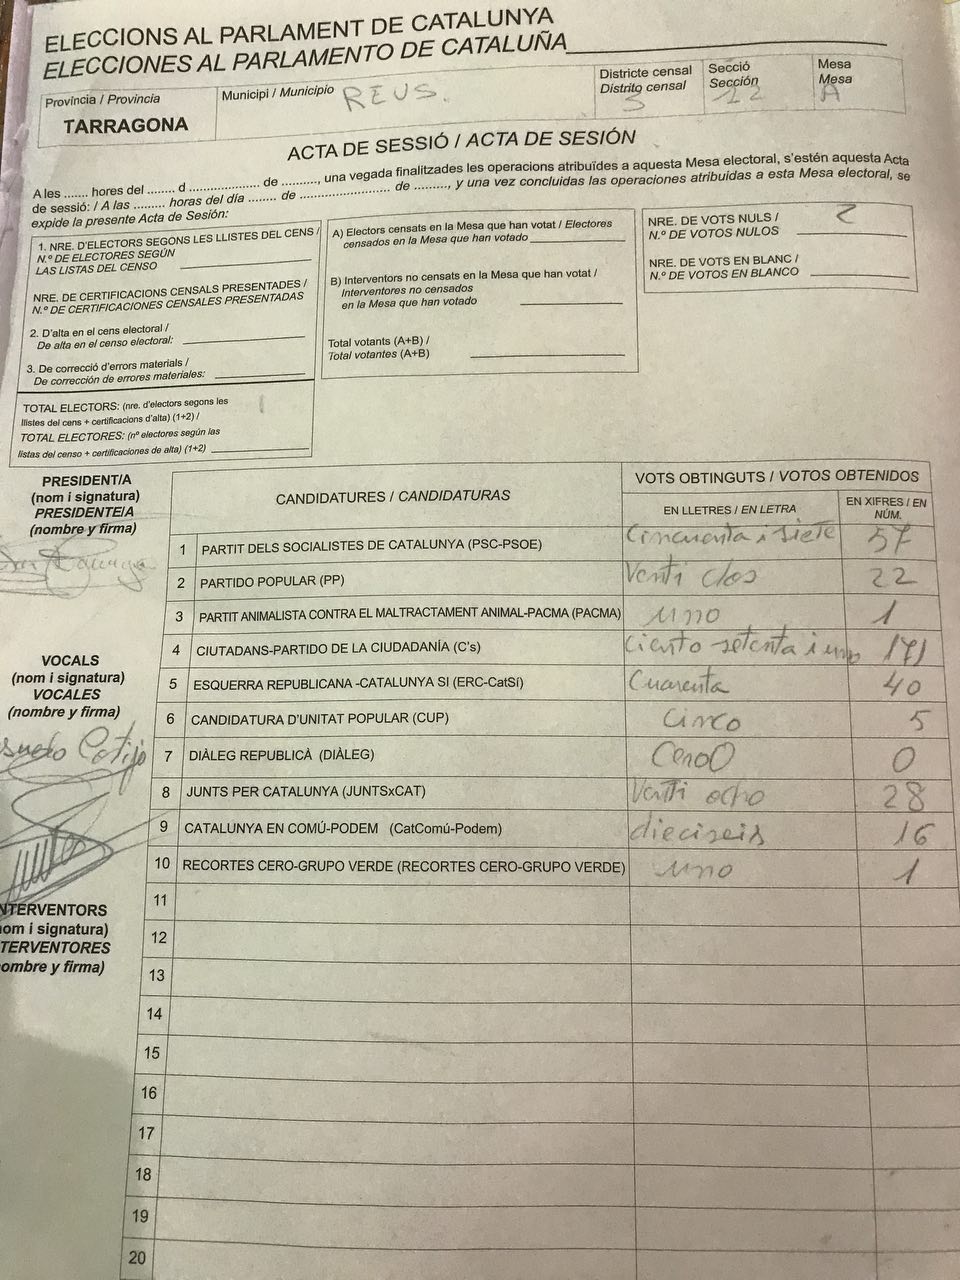 ELECCIONS AL PARLAMENT DE CATALUNYA
ELECCIONES AL PARLAMENTO DE CATALUÑA
Província / Provincia
TARRAGONA
Municipi / Municipio
REUS.
Districte censal
Distrito censal
3
Secció
Sección
12
Mesa
Mesa
A
ACTA DE SESSIÓ / ACTA DE SESIÓN
A les ....... hores del ........ d .................... de .........., una vegada finalitzades les operacions atribuïdes a aquesta Mesa electoral, s'estén aquesta Acta
de sessió: / A las ......... horas del día ........ de .......................... de ........., y una vez concluidas las operaciones atribuidas a esta Mesa electoral, se
expide la presente Acta de Sesión:
1. NRE. D'ELECTORS SEGONS LES LLISTES DEL CENS /
N.º DE ELECTORES SEGÚN
LAS LISTAS DEL CENSO
NRE. DE CERTIFICACIONS CENSALS PRESENTADES /
N.º DE CERTIFICACIONES CENSALES PRESENTADAS
2. D'alta en el cens electoral /
De alta en el censo electoral:
3. De correcció d'errors materials /
De corrección de errores materiales:
TOTAL ELECTORS: (nre. d'electors segons les
llistes del cens + certificacions d'alta) (1+2) /
TOTAL ELECTORES: (nº electores según las
listas del censo + certificaciones de alta) (1+2)
A) Electors censats en la Mesa que han votat / Electores
censados en la Mesa que han votado
B) Interventors no censats en la Mesa que han votat /
Interventores no censados
en la Mesa que han votado
Total votants (A+B) /
Total votantes (A+B)
NRE. DE VOTS NULS /
N.º DE VOTOS NULOS
2
NRE. DE VOTS EN BLANC /
N.º DE VOTOS EN BLANCO
PRESIDENT/A
(nom i signatura)
PRESIDENTE/A
(nombre y firma)
VOCALS
(nom i signatura)
VOCALES
(nombre y firma)
NTERVENTORS
nom i signatura)
TERVENTORES
ombre y firma)
CANDIDATURES / CANDIDATURAS
VOTS OBTINGUTS / VOTOS OBTENIDOS
EN LLETRES / EN LETRA
EN XIFRES / EN
NÚM.
1 PARTIT DELS SOCIALISTES DE CATALUNYA (PSC-PSOE) Cincuenta i siete 57
2 PARTIDO POPULAR (PP) Venti dos 22
3 PARTIT ANIMALISTA CONTRA EL MALTRACTAMENT ANIMAL-PACMA (PACMA) uno 1
4 CIUTADANS-PARTIDO DE LA CIUDADANÍA (C's) Ciento setenta i uno 171
5 ESQUERRA REPUBLICANA -CATALUNYA SI (ERC-CatSí) Cuarenta 40
6 CANDIDATURA D'UNITAT POPULAR (CUP) Cinco 5
7 DIÀLEG REPUBLICÀ (DIÀLEG) CeroO 0
8 JUNTS PER CATALUNYA (JUNTSxCAT) Venti ocho 28
9 CATALUNYA EN COMÚ-PODEM (CatComú-Podem) dieciseis 16
10 RECORTES CERO-GRUPO VERDE (RECORTES CERO-GRUPO VERDE) uno 1
11
12
13
14
15
16
17
18
19
20